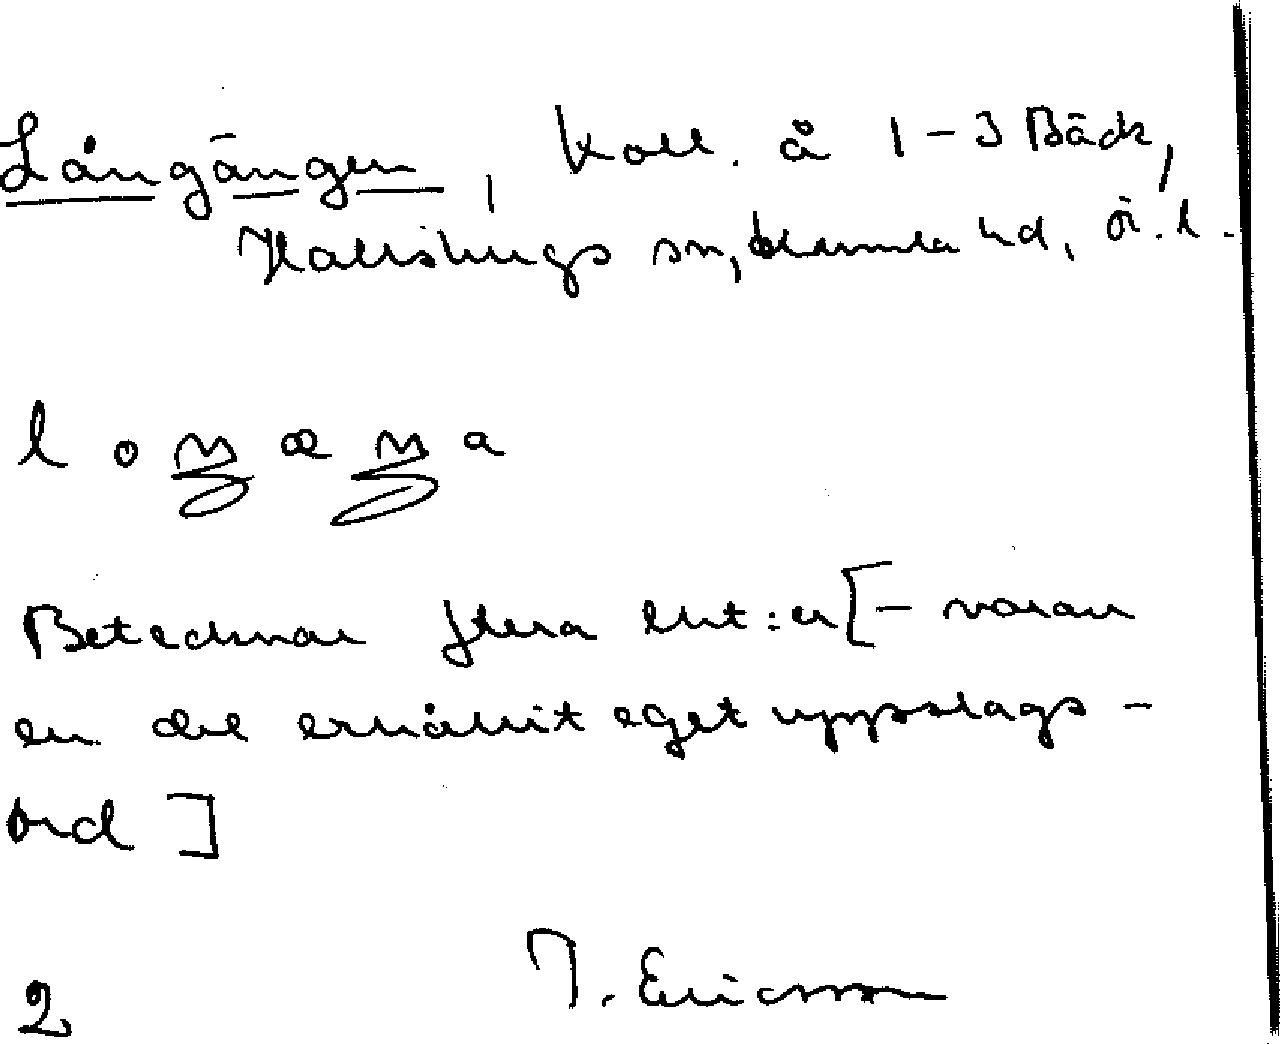 Långängen, koll. å 1-3 Bäck,
Hallsbergs sn, Kumla hd, Ö.l.
l o ŋ æ ŋ a
Betecknar flera ent:er [- varav
en del erhållit eget uppslags-
ord ]
T. Ericsson
2